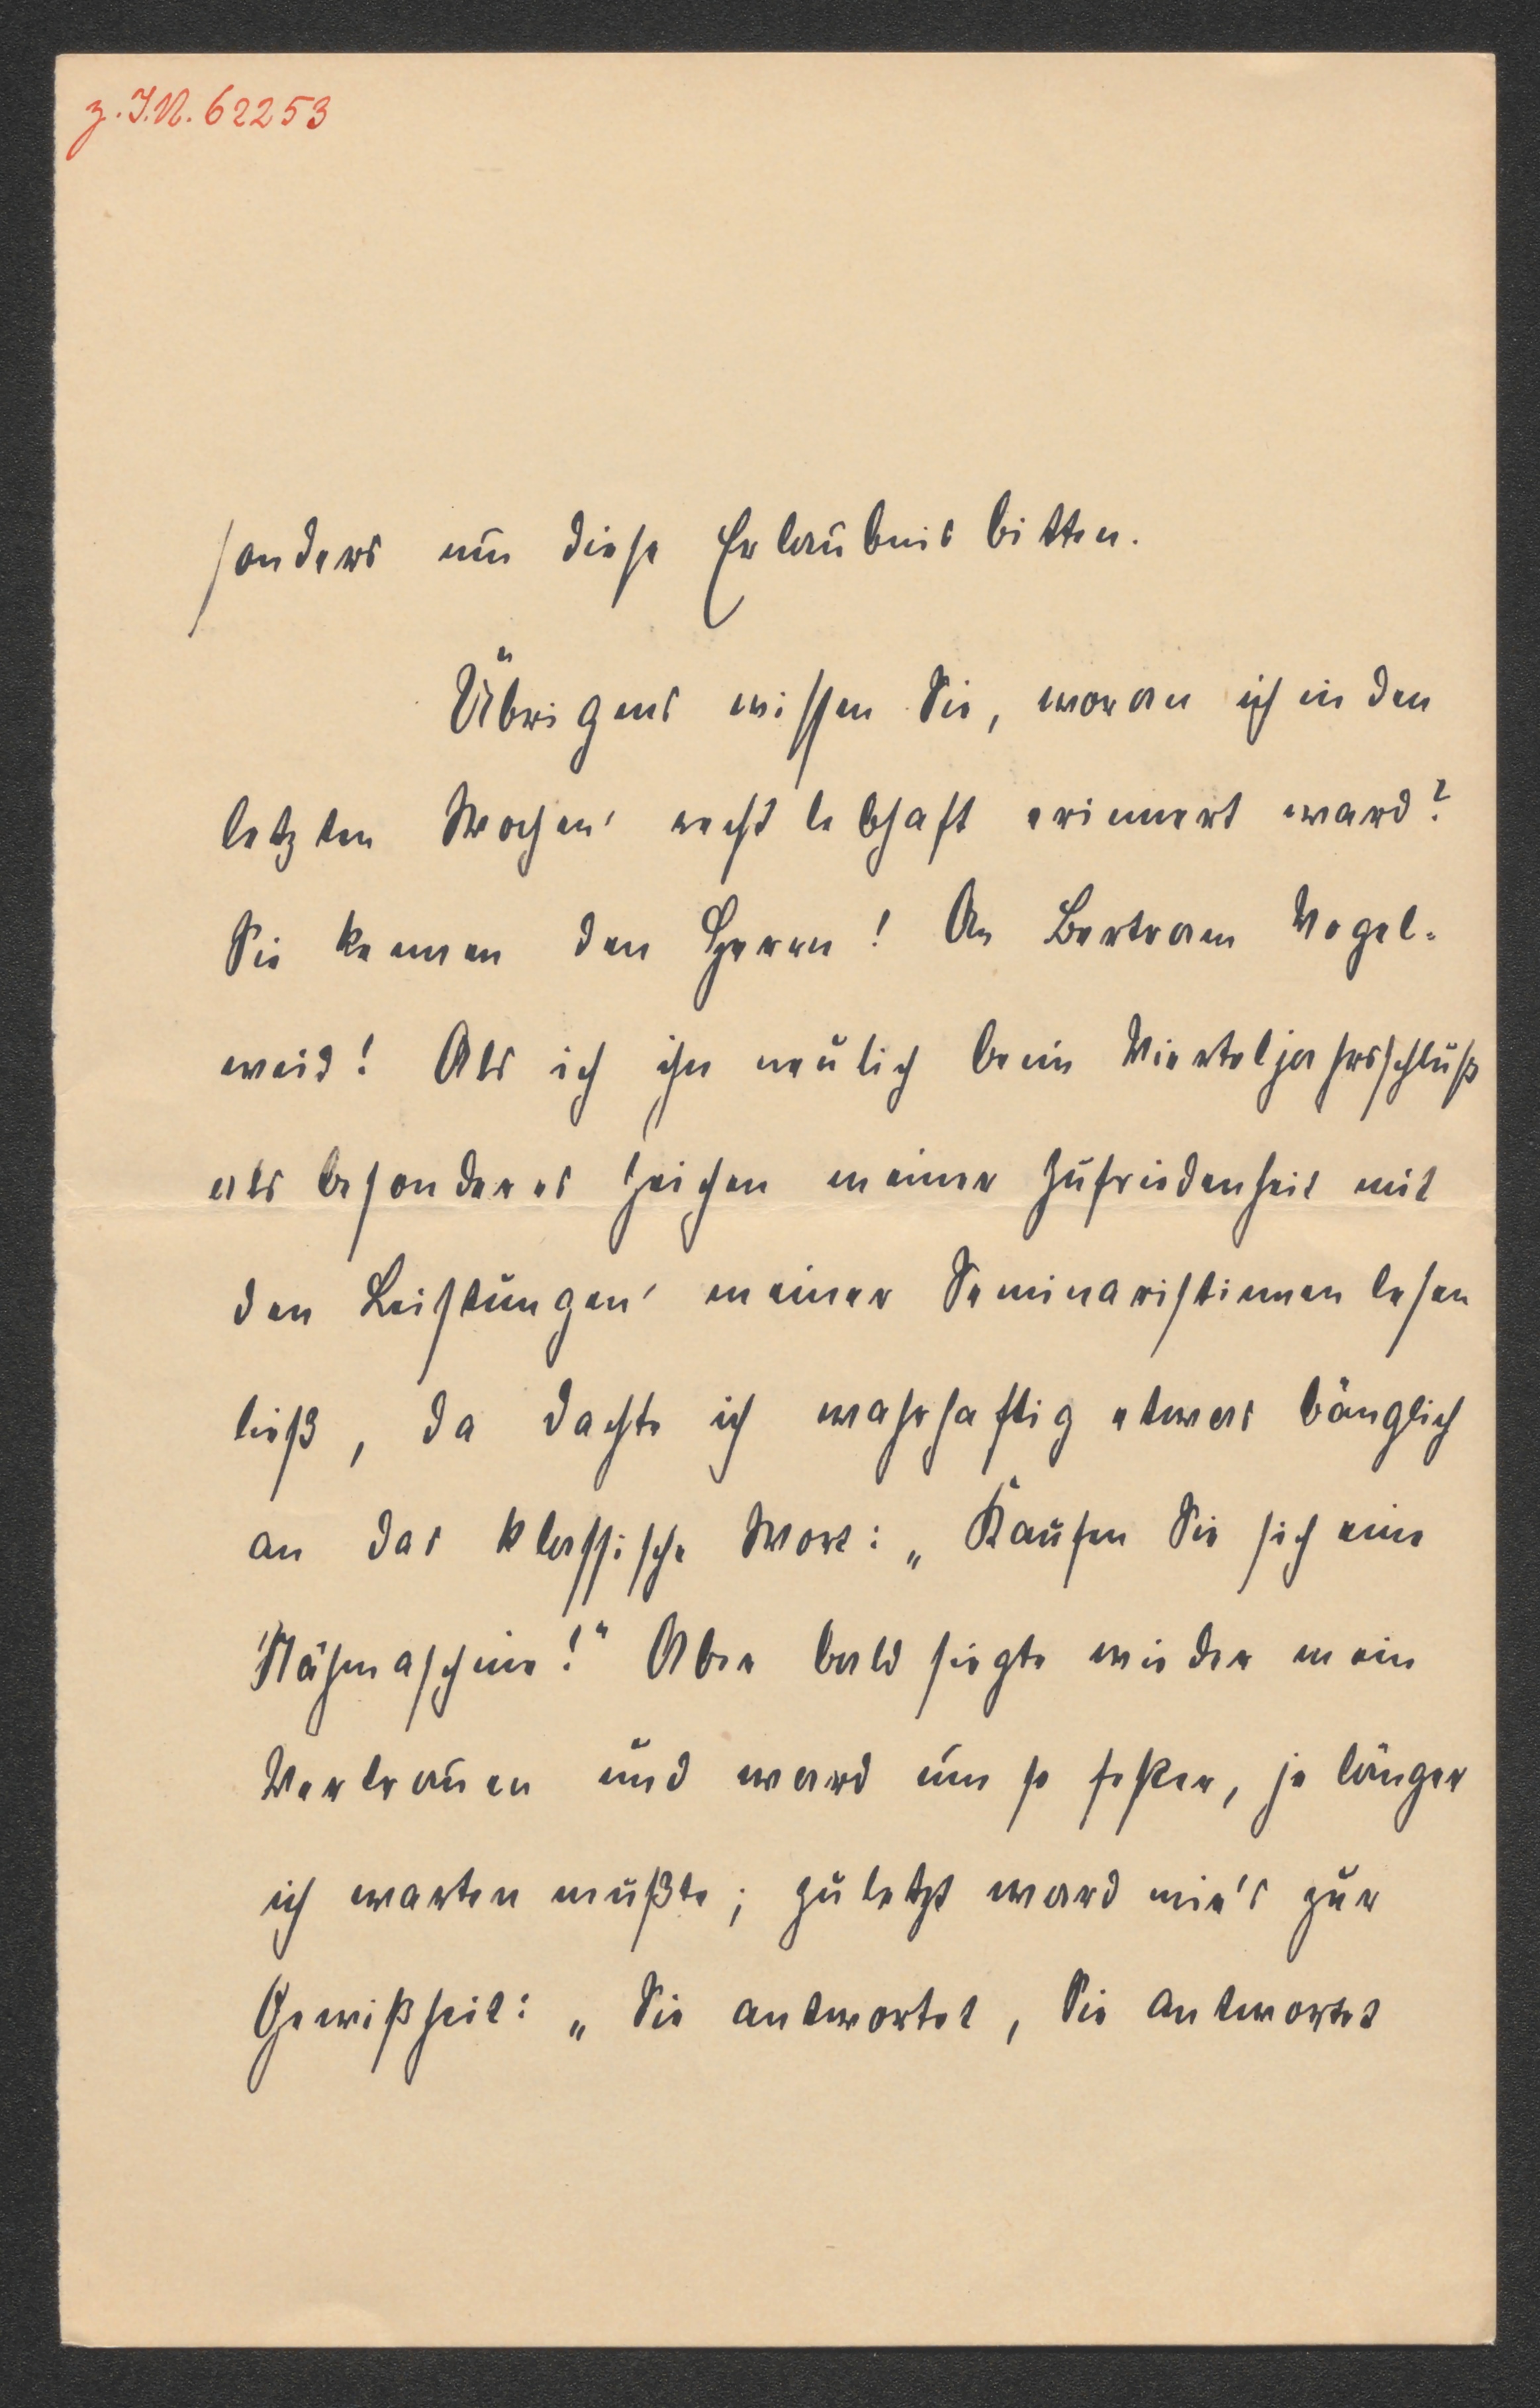 z. I.N. 62253
sonders um diese Erlaubnis bitten.
Übrigens wissen Sie, woran ich in den
letzten Wochen recht lebhaft erinnert ward?
Sie kennen den Herrn! An Bertram Vogel-
weid! Als ich ihn neulich beim Vierteljahrsschluß
als besonderes Zeichen meiner Zufriedenheit mit
den Leistungen meiner Seminaristinnen lesen
ließ, da dachte ich wahrhaftig etwas bänglich
an das klassische Wort: „Kaufen Sie sich eine
Nähmaschine!“ Aber bald siegte wieder mein
Vertrauen und ward um so fester, je länger
ich warten mußte; zuletzt ward mir's zur
Gewißheit: „Sie antwortet, Sie antwortet